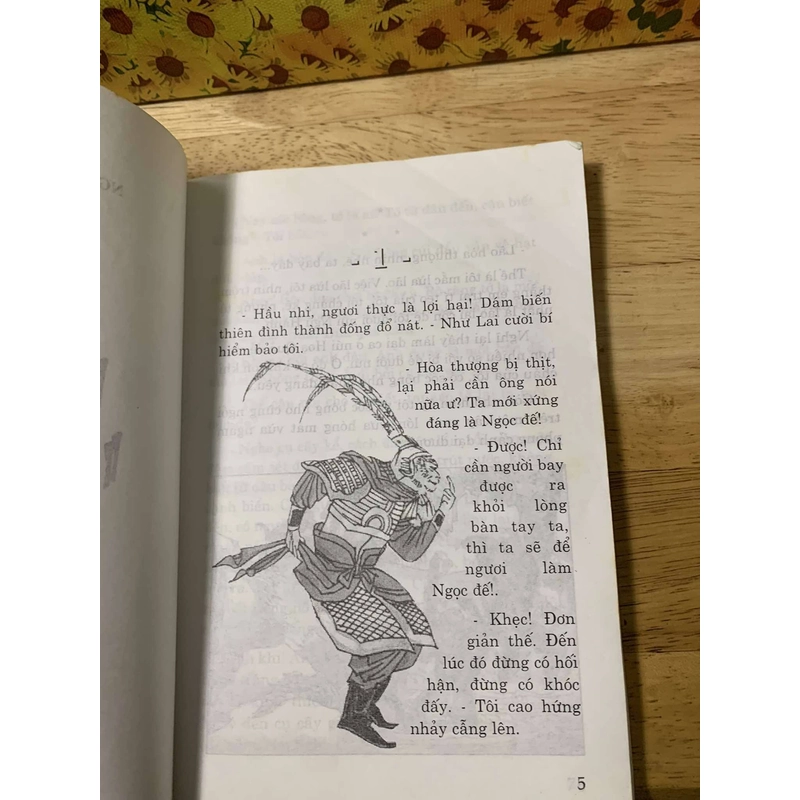 - 1 -
- Hầu nhi, ngươi thực là lợi hại! Dám biến
thiên đình thành đống đổ nát. - Như Lai cười bí
hiểm bảo tôi.
- Hòa thượng bị thịt,
lại phải cần ông nói
nữa ư? Ta mới xứng
đáng là Ngọc đế!
- Được! Chỉ
cần người bay
được ra
khỏi lòng
bàn tay ta,
thì ta sẽ để
ngươi làm
Ngọc đế!.
- Khẹc! Đơn
giản thế. Đến
lúc đó đừng có hối
hận, đừng có khóc
đấy. - Tôi cao hứng
nhảy cẫng lên.
5